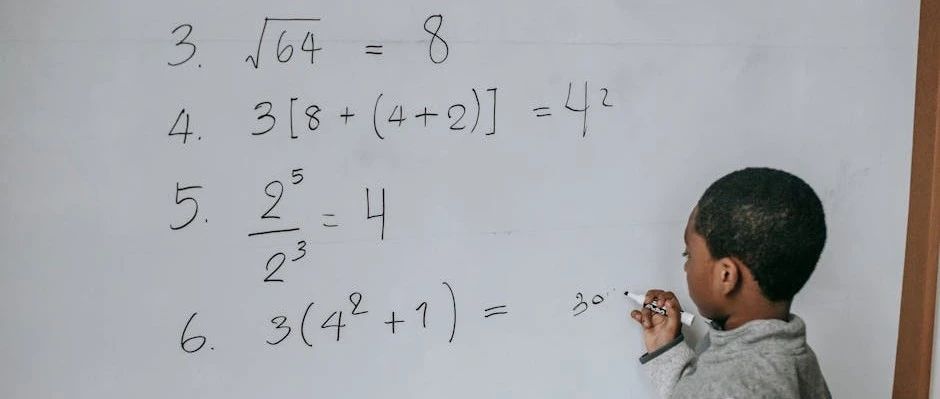 3. √64 = 8
4. 3[8 + (4+2)] = 4²
5. 2⁵/2³ = 4
6. 3(4² + 1) = 30